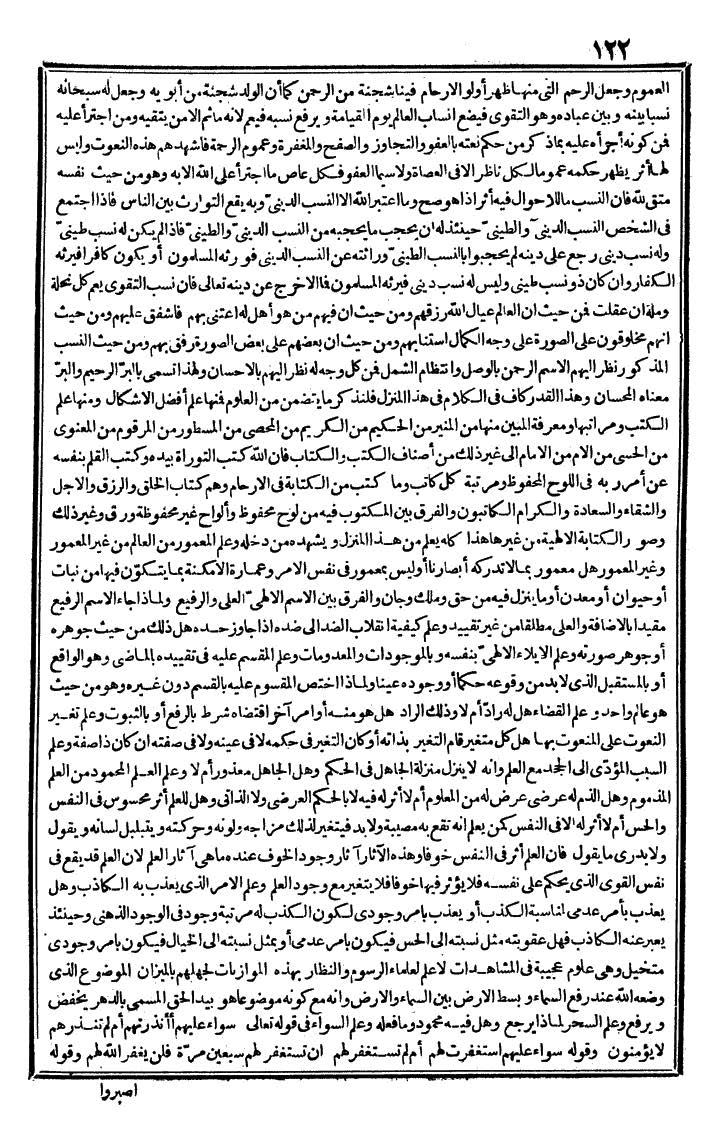 ١٢٢
العموم وجعل الرحم التى منها ظهر أولو الارحام فينا شجنة من الرحمن كما أن الولد شجنة من أبويه وجعل له سبحانه
نسبا بينه وبين عباده وهو التقوى فيضع انساب العالم يوم القيامة ويرفع نسبه فيعم لانه ما ثم الامن يتقيه ومن اجترأ عليه
فمن كونه أجرأه عليه بماذكر من حكم نعته بالعفو والتجاوز والصفح والمغفرة وعموم الرحمة فاشهدهم هذه النعوت وليس
لها أثر يظهر حكمه عموما لكل ناظر الا فى العصاة ولاسيما العفو فكل عاص ما اجترأ على الله الا به وهو من حيث نفسه
متق لله فان النسب ما للاحوال فيه أثر اذا هو صح وما اعتبر الله الا النسب الدينىّ وبه يقع التوارث بين الناس فاذا اجتمع
فى الشخص النسب الدينىّ والطينىّ حينئذ له ان يحجب ما يحجبه من النسب الدينىّ والطينىّ فاذا لم يكن له نسب طينىّ
وله نسب دينى رجع على دينه لم يحجبوا بالنسب الطينىّ وراثته عن النسب الدينى فورثه المسلمون أو يكون كافرا فيرثه
الكفار وان كان ذو نسب طينى وليس له نسب دينى فيرثه المسلمون فما الاخرج عن دينه تعالى فان نسب التقوى يعم كل نحلة
وملة ان عقلت فمن حيث ان العالم عيال الله رزقهم ومن حيث ان فيهم من هو أهل له اعتنى بهم فاشفق عليهم ومن حيث
انهم مخلوقون على الصورة على وجه الكمال استنابهم ومن حيث ان بعضهم على بعض الصورة رفق بهم ومن حيث النسب
المذكور نظر اليهم الاسم الرحمن بالوصل وانتظام الشمل فمن كل وجه له نظر اليهم بالاحسان ولهذا تسمى بالبرّ الرحيم والبرّ
معناه المحسان وهذا القدر كاف فى الكلام فى هذا المنزل فلنذكر ما يتضمن من العلوم فنها علم أفضل الاشكال ومنها علم
الكتب ومراتبها ومعرفة المبين منها من المنير من الحكيم من الكريم من المحصى من المسطور من المرقوم من المعنوى
من الحسى من الام من الامام الى غير ذلك من أصناف الكتب والكتاب فان الله كتب التوراة بيده وكتب القلم بنفسه
عن أمر ربه فى اللوح المحفوظ ومرتبة كل كاتب وما كتب من الكتابة فى الارحام وهم كتاب الخلق والرزق والاجل
والشقاء والسعادة والكرام الكاتبون والفرق بين المكتوب فيه من لوح محفوظ وألواح غير محفوظة ورق وغير ذلك
وصور الكتابة الالهية من غيرها هذا كله يعلم من هذا المنزل ويشهده من دخله وعلم المعمور من العالم من غير المعمور
وغير المعمور هل معمور بمالا تدركه أبصارنا أو ليس بمعمور فى نفس الامر وعمارة الامكنة بما يتكوّن فيها من نبات
أو حيوان أو معدن أو ما ينزل فيه من حق وملك وجان والفرق بين الاسم الالهىّ العلى والرفيع ولماذا جاء الاسم الرفيع
مقيدا بالاضافة والعلى مطلقا من غير تقييد وعلم كيفية انقلاب الضد الى ضده اذا جاوز حده هل ذلك من حيث جوهره
أو جوهر صورته وعلم الايلاء الالهىّ بنفسه وبالموجودات والمعدومات وعلم المقسم عليه فى تقييده بالماضى وهو الواقع
أو بالمستقبل الذى لابد من وقوعه حكما أو وجوده عينا ولماذا اختص المقسوم عليه بالقسم دون غيره وهو من حيث
هو عالم واحد وعلم القضاء هل له رادّ أم لا وذلك الراد هل هو منه أو امر آخر اقتضاه شرط بالرفع أو بالثبوت وعلم تغير
النعوت على المنعوت بها هل كل متغير قام التغير بذاته أو كان التغير فى حكمه لا فى عينه ولا فى صفته ان كان ذا صفة وعلم
السبب المؤدّى الى الجحد مع العلم وانه لا ينزل منزلة الجاهل فى الحكم وهل الجاهل معذور أم لا وعلم العلم المحمود من العلم
المذموم وهل الذم له عرضى عرض له من المعلوم أم لا أثر له فيه لا بالحكم العرضى ولا الذاتى وهل للعلم أثر محسوس فى النفس
والحس أم لا أثر له الا فى النفس كمن يعلم انه تقع به مصيبة ولابد فيتغير لذلك مزاجه ولونه وحركته ويتبلبل لسانه ويقول
ولا يدرى ما يقول فان العلم أثر فى النفس خوفا وهذه الآثار آثار وجود الخوف عنده ما هى آثار العلم لان العلم قد يقع فى
نفس القوى الذى يحكم على نفسه فلا يؤثر فيها خوفا فلا يتغير مع وجود العلم وعلم الامر الذى يعذب به الكاذب وهل
يعذب بأمر عدمى لمناسبة الكذب أو يعذب بامر وجودى لكون الكذب له مرتبة وجود فى الوجود الذهنى وحينئذ
يعبر عنه الكاذب فهل عقوبته مثل نسبته الى الحس فيكون بامر عدمى أو بمثل نسبته الى الخيال فيكون بامر وجودى
متخيل وهى علوم عجيبة فى المشاهدات لا علم لعلماء الرسوم والنظار بهذه الموازنات لجهلهم بالميزان الموضوع الذى
وضعه الله عند رفع السماء وبسط الارض بين السماء والارض وانه مع كونه موضوعا هو بيد الحق المسمى بالدهر يخفض
ويرفع وعلم السحر لماذا يرجع وهل فيه محمود وما فعله وعلم السواء فى قوله تعالى سواء عليهم أأنذرتهم أم لم تنذرهم
لا يؤمنون وقوله سواء عليهم استغفرت لهم أم لم تستغفرلهم ان تستغفر لهم سبعين مرّة فلن يغفر الله لهم وقوله
اصبروا